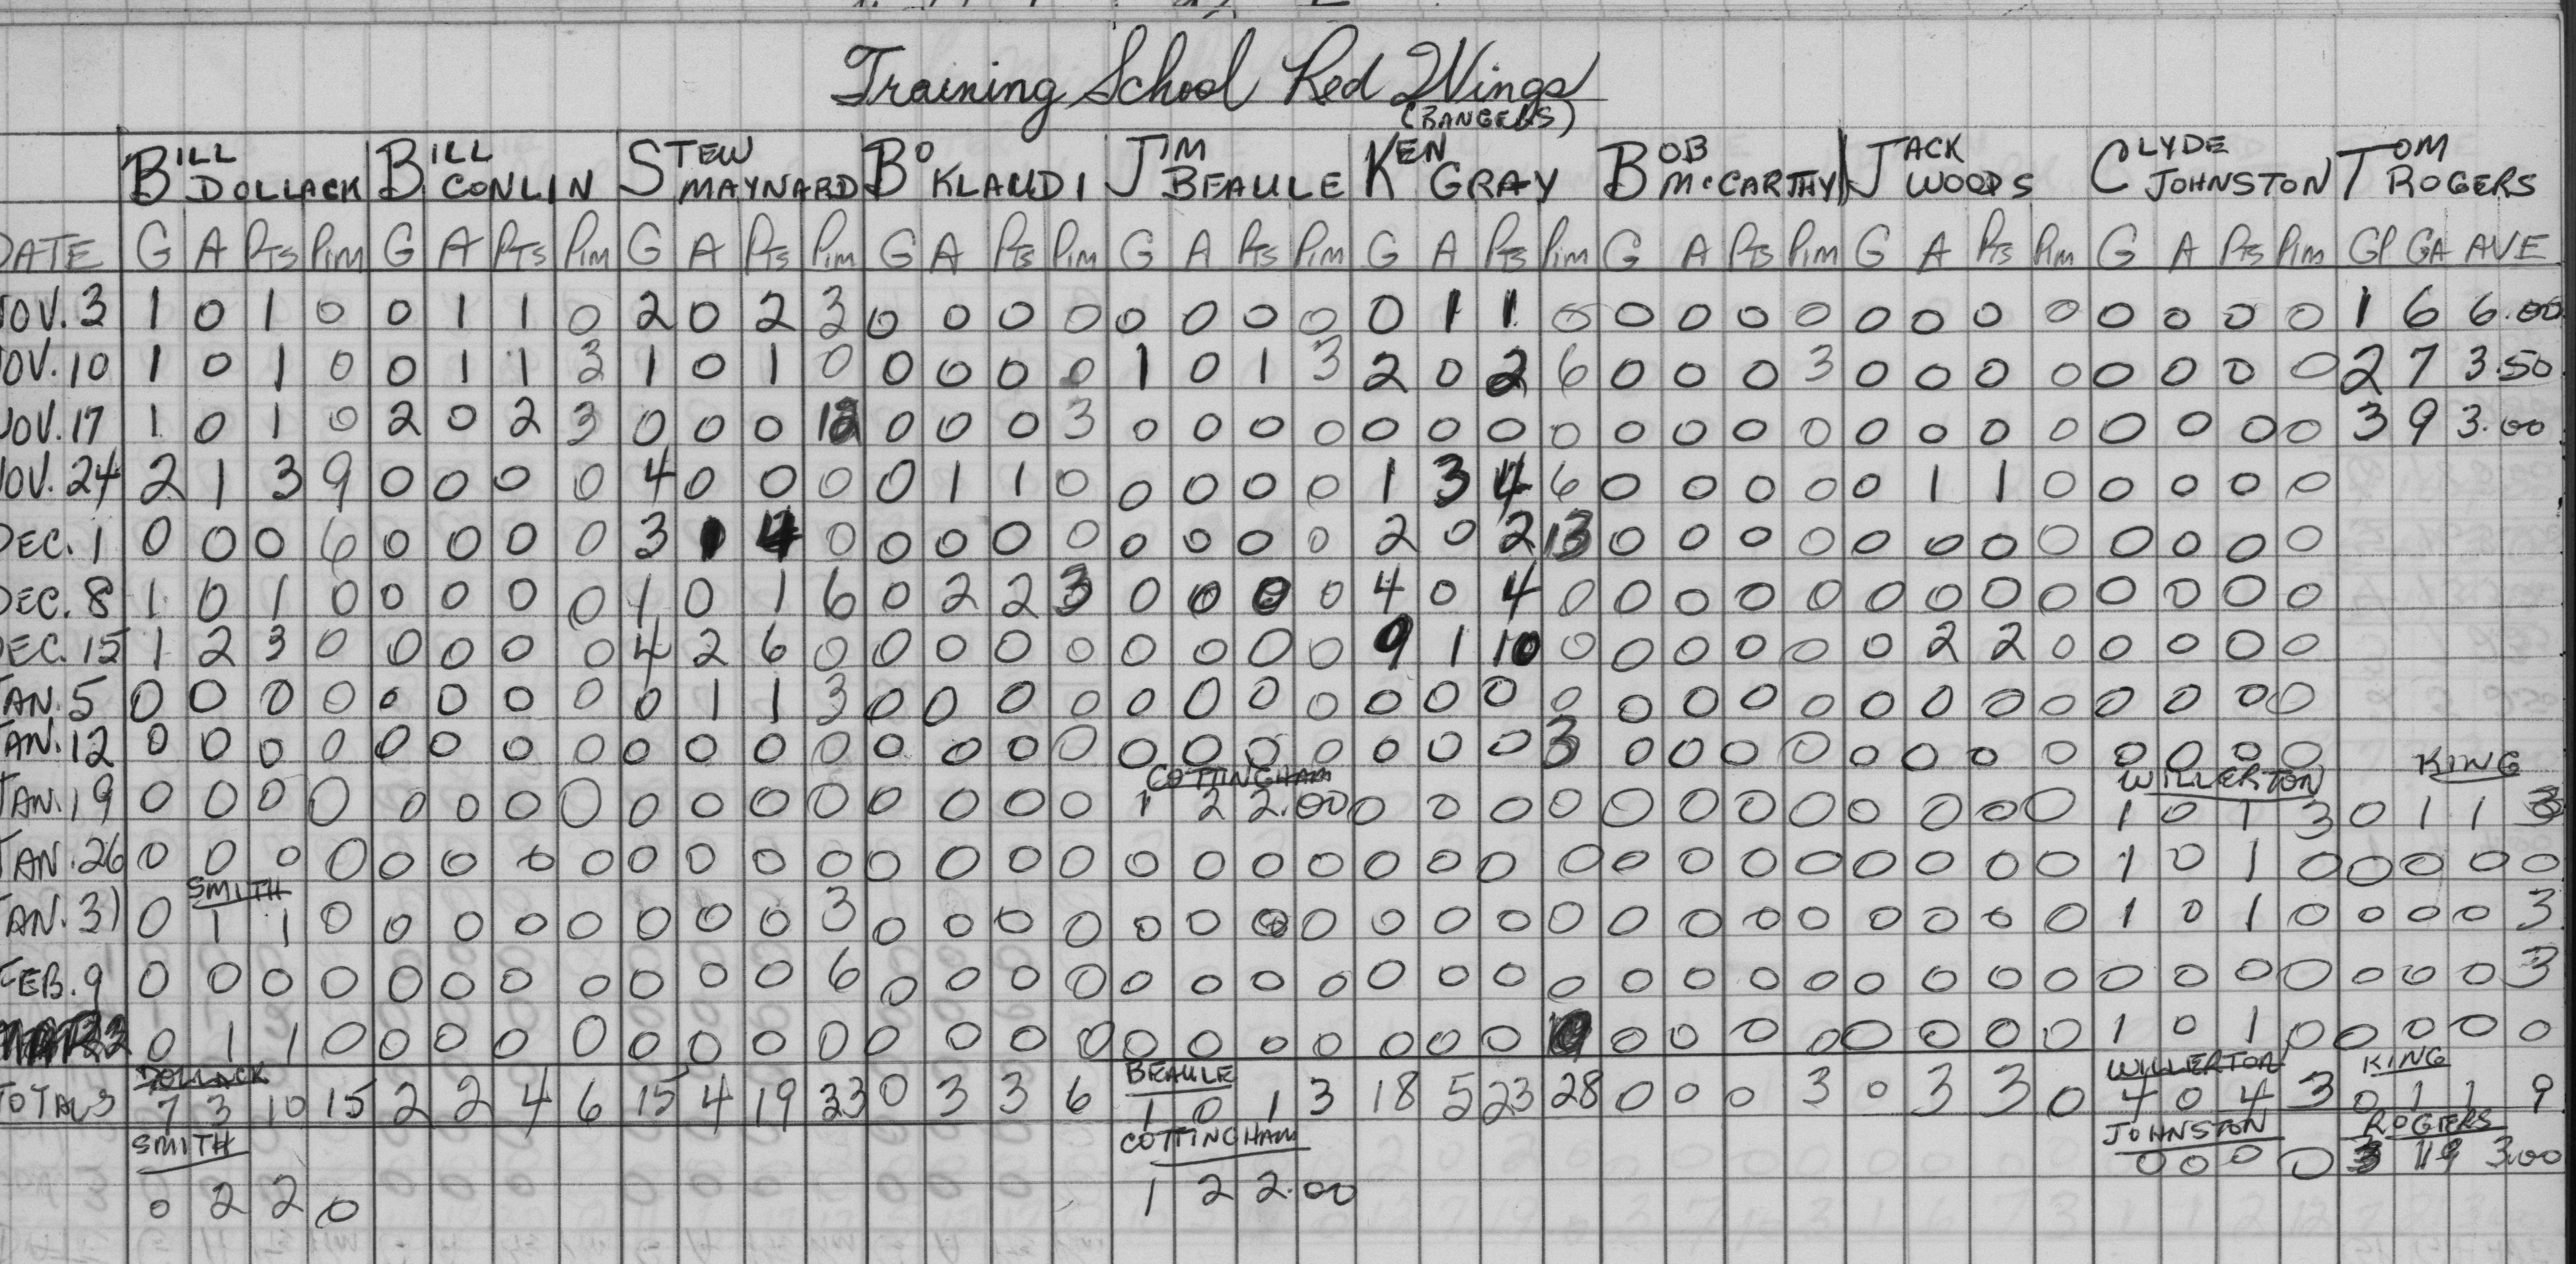 Training School Red Wings
(RANGERS)
BILL DOLLACK BILL CONLIN STEW MAYNARD BO KLAUDI JIM BEAULE KEN GRAY BOB McCARTHY JACK WOODS CLYDE JOHNSTON TOM ROGERS
DATE G A PTS PIM G A PTS PIM G A PTS PIM G A PTS PIM G A PTS PIM G A PTS PIM G A PTS PIM G A PTS PIM G A PTS PIM GP GA AVE
NOV. 3 1 0 1 0 0 1 1 0 2 0 2 3 0 0 0 0 0 0 0 0 0 1 1 0 0 0 0 0 0 0 0 0 0 0 0 0 1 6 6.00
NOV. 10 1 0 1 0 0 1 1 3 1 0 1 0 0 0 0 0 1 0 1 3 2 0 2 6 0 0 0 3 0 0 0 0 0 0 0 0 2 7 3.50
NOV. 17 1 0 1 0 2 0 2 3 0 0 0 12 0 0 0 3 0 0 0 0 0 0 0 0 0 0 0 0 0 0 0 0 0 0 0 0 3 9 3.00
NOV. 24 2 1 3 9 0 0 0 0 4 0 0 0 0 1 1 0 0 0 0 0 1 3 4 6 0 0 0 0 0 1 1 0 0 0 0 0
DEC. 1 0 0 0 6 0 0 0 0 3 1 4 0 0 0 0 0 0 0 0 0 2 0 2 13 0 0 0 0 0 0 0 0 0 0 0 0
DEC. 8 1 0 1 0 0 0 0 0 1 0 1 6 0 2 2 3 0 0 0 0 4 0 4 0 0 0 0 0 0 0 0 0 0 0 0 0
DEC. 15 1 2 3 0 0 0 0 0 4 2 6 0 0 0 0 0 0 0 0 0 9 1 10 0 0 0 0 0 0 2 2 0 0 0 0 0
JAN. 5 0 0 0 0 0 0 0 0 0 1 1 3 0 0 0 0 0 0 0 0 0 0 0 0 0 0 0 0 0 0 0 0 0 0 0 0
JAN. 12 0 0 0 0 0 0 0 0 0 0 0 0 0 0 0 0 0 0 0 0 0 0 0 3 0 0 0 0 0 0 0 0 0 0 0 0
COTTINGHAM WILLERTON KING
JAN. 19 0 0 0 0 0 0 0 0 0 0 0 0 0 0 0 0 1 2 2.00 0 0 0 0 0 0 0 0 0 0 0 0 1 0 1 3 0 1 1 3
JAN. 26 0 0 0 0 0 0 0 0 0 0 0 0 0 0 0 0 0 0 0 0 0 0 0 0 0 0 0 0 0 0 0 0 1 0 1 0 0 0 0 0
SMITH
JAN. 31 0 1 1 0 0 0 0 0 0 0 0 3 0 0 0 0 0 0 0 0 0 0 0 0 0 0 0 0 0 0 0 0 1 0 1 0 0 0 0 3
FEB. 9 0 0 0 0 0 0 0 0 0 0 0 6 0 0 0 0 0 0 0 0 0 0 0 0 0 0 0 0 0 0 0 0 0 0 0 0 0 0 0 3
0 1 1 0 0 0 0 0 0 0 0 0 0 0 0 0 0 0 0 0 0 0 0 0 0 0 0 0 0 0 0 1 0 1 0 0 0 0 0
DOLLACK BEAULE WILLERTON KING
TOTALS 7 3 10 15 2 2 4 6 15 4 19 33 0 3 3 6 1 0 1 3 18 5 23 28 0 0 0 3 0 3 3 0 4 0 4 3 0 1 1 9
SMITH COTTINGHAM JOHNSTON ROGERS
0 0 0 0 3 3.00
0 2 2 0 1 2 2.00